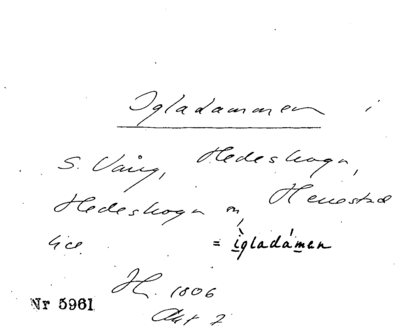 Igladammen i
S. Vång, Hedeskoga,
Hedeskoga sn, Herrestad
= ìgladámen
H. 1806
Akt 7
Nr 5961